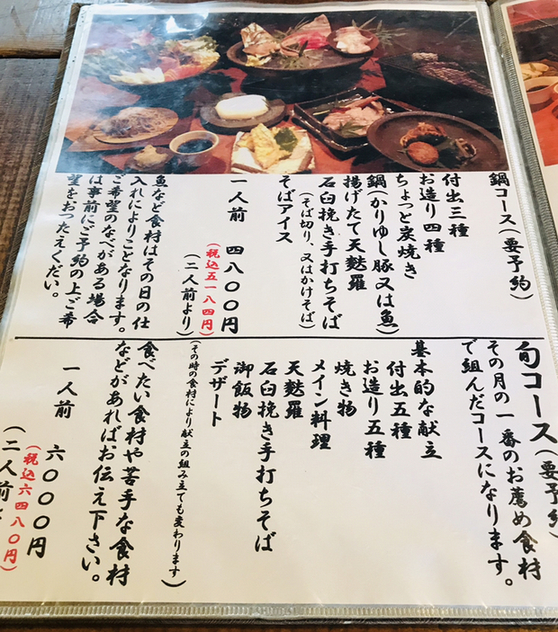 鍋コース(要予約)
付出三種
お造り四種
ちょっと炭焼き
鍋(かりゆし豚又は魚)
揚げたて天麩羅
石臼挽き手打ちそば
(そば切り、又はかけそば)
そばアイス
一人前 四八〇〇円
(税込五一八四円)
(二人前より)
魚など食材はその日の仕
入れによりことなります。
ご希望のなべがある場合
は事前にご予約の上ご希
望をおつたえくだい。
旬コース(要予約)
その月の一番のお薦め食材
で組んだコースになります。
基本的な献立
付出五種
お造り五種
焼き物
メイン料理
天麩羅
石臼挽き手打ちそば
御飯物
デザート
(その時の食材により献立の組み立ても変わります)
食べたい食材や苦手な食材
などがあればお伝え下さい。
一人前 六〇〇〇円
(税込六四八〇円)
(二人前